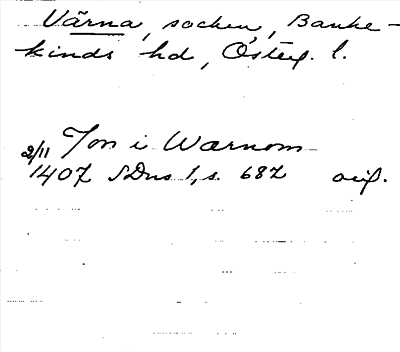 Värna, socken, Banke-
kinds hd, Österg. l.
Jon i Warnom
2/11 1407 SDns 1, s. 687 orig.